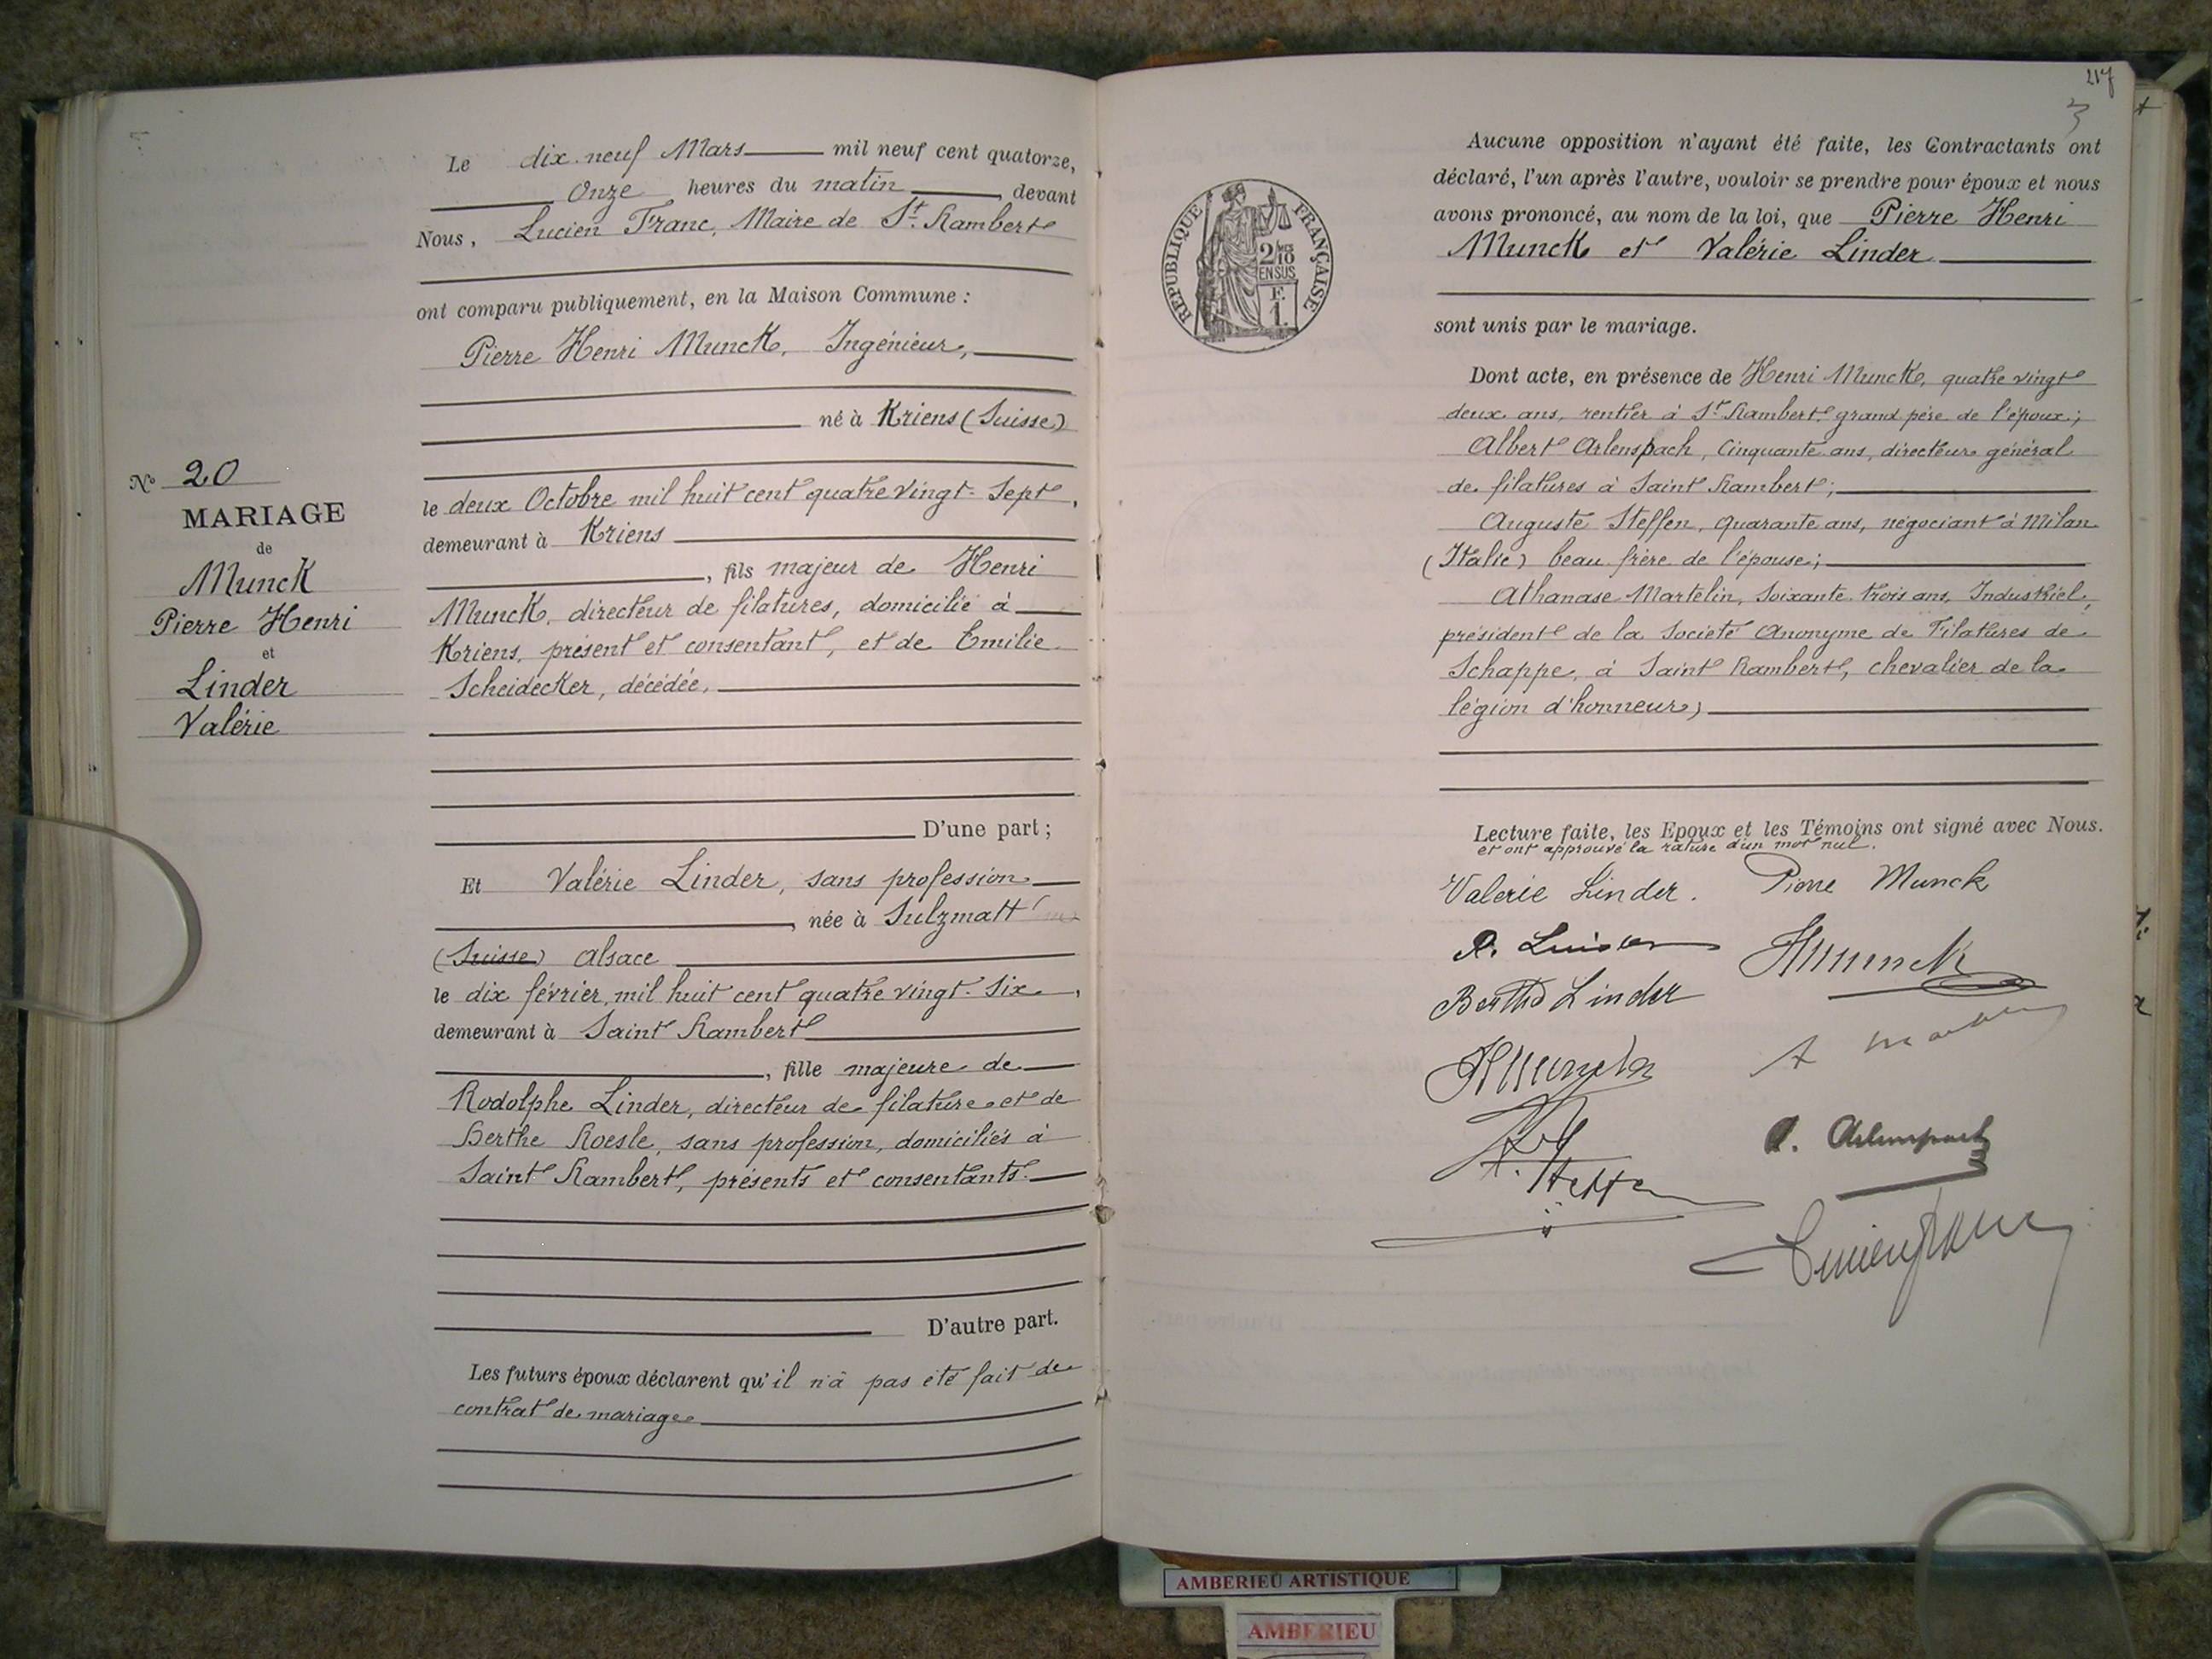 Le dix-neuf Mars mil neuf cent quatorze,
Onze heures du matin, devant
Nous, Lucien Franc, Maire de St. Rambert
ont comparu publiquement, en la Maison Commune :
Pierre Henri Munck, Ingénieur,
né à Kriens (Suisse)
le deux Octobre mil huit cent quatre vingt-Sept,
demeurant à Kriens
, fils majeur de Henri
Munck, directeur de filatures, domicilié à
Kriens, présent et consentant, et de Emilie
Scheidecker, décédée,
D'une part ;
Et Valérie Linder, sans profession
, née à Sulzmatt
(Suisse) Alsace
le dix février mil huit cent quatre vingt-Six,
demeurant à Saint Rambert
, fille majeure de
Rodolphe Linder, directeur de filature et de
Berthe Roesle, sans profession, domiciliés à
Saint Rambert, présents et consentants.
D'autre part.
Les futurs époux déclarent qu'il n'a pas été fait de
contrat de mariage
N° 20
MARIAGE
de
Munck
Pierre Henri
et
Linder
Valérie
217
3
REPUBLIQUE FRANÇAISE
2/10 MES
EN SUS
F.
1.
Aucune opposition n'ayant été faite, les Contractants ont
déclaré, l'un après l'autre, vouloir se prendre pour époux et nous
avons prononcé, au nom de la loi, que Pierre Henri
Munck et Valérie Linder
sont unis par le mariage.
Dont acte, en présence de Henri Munck, quatre vingt
deux ans, rentier à St Rambert grand père de l'époux ;
Albert Arlenspach, Cinquante ans, directeur général
de filatures à Saint Rambert ;
Auguste Steffen, quarante ans, négociant à Milan
(Italie) beau frère de l'épouse ;
Athanase Martelin, Soixante trois ans, Industriel,
président de la Société Anonyme de Filatures de
Schappe, à Saint Rambert, chevalier de la
légion d'honneur ;
Lecture faite, les Epoux et les Témoins ont signé avec Nous.
et ont approuvé la rature d'un mot nul.
Valerie Linder. Pierre Munck
R. Linder HMunck
Berthe Linder
HMunck
A
A. Steffen
A. Arlenspach
Lucien Franc
AMBERIEU ARTISTIQUE
AMBERIEU